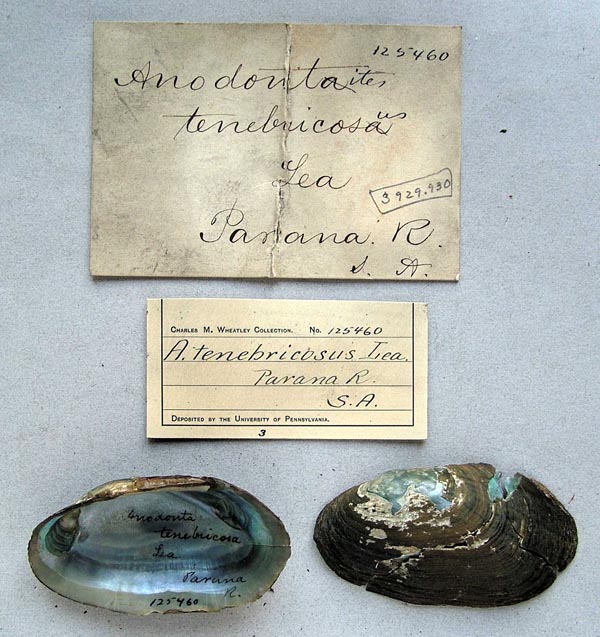 125460
Anodontaites
tenebricosaus
Lea
3929.930
Parana. R.
S. A.
CHARLES M. WHEATLEY COLLECTION. No. 125460
A. tenebricosus Lea.
Parana R.
S.A.
DEPOSITED BY THE UNIVERSITY OF PENNSYLVANIA.
3
Anodonta
tenebricosa
Lea
Parana
R.
125460